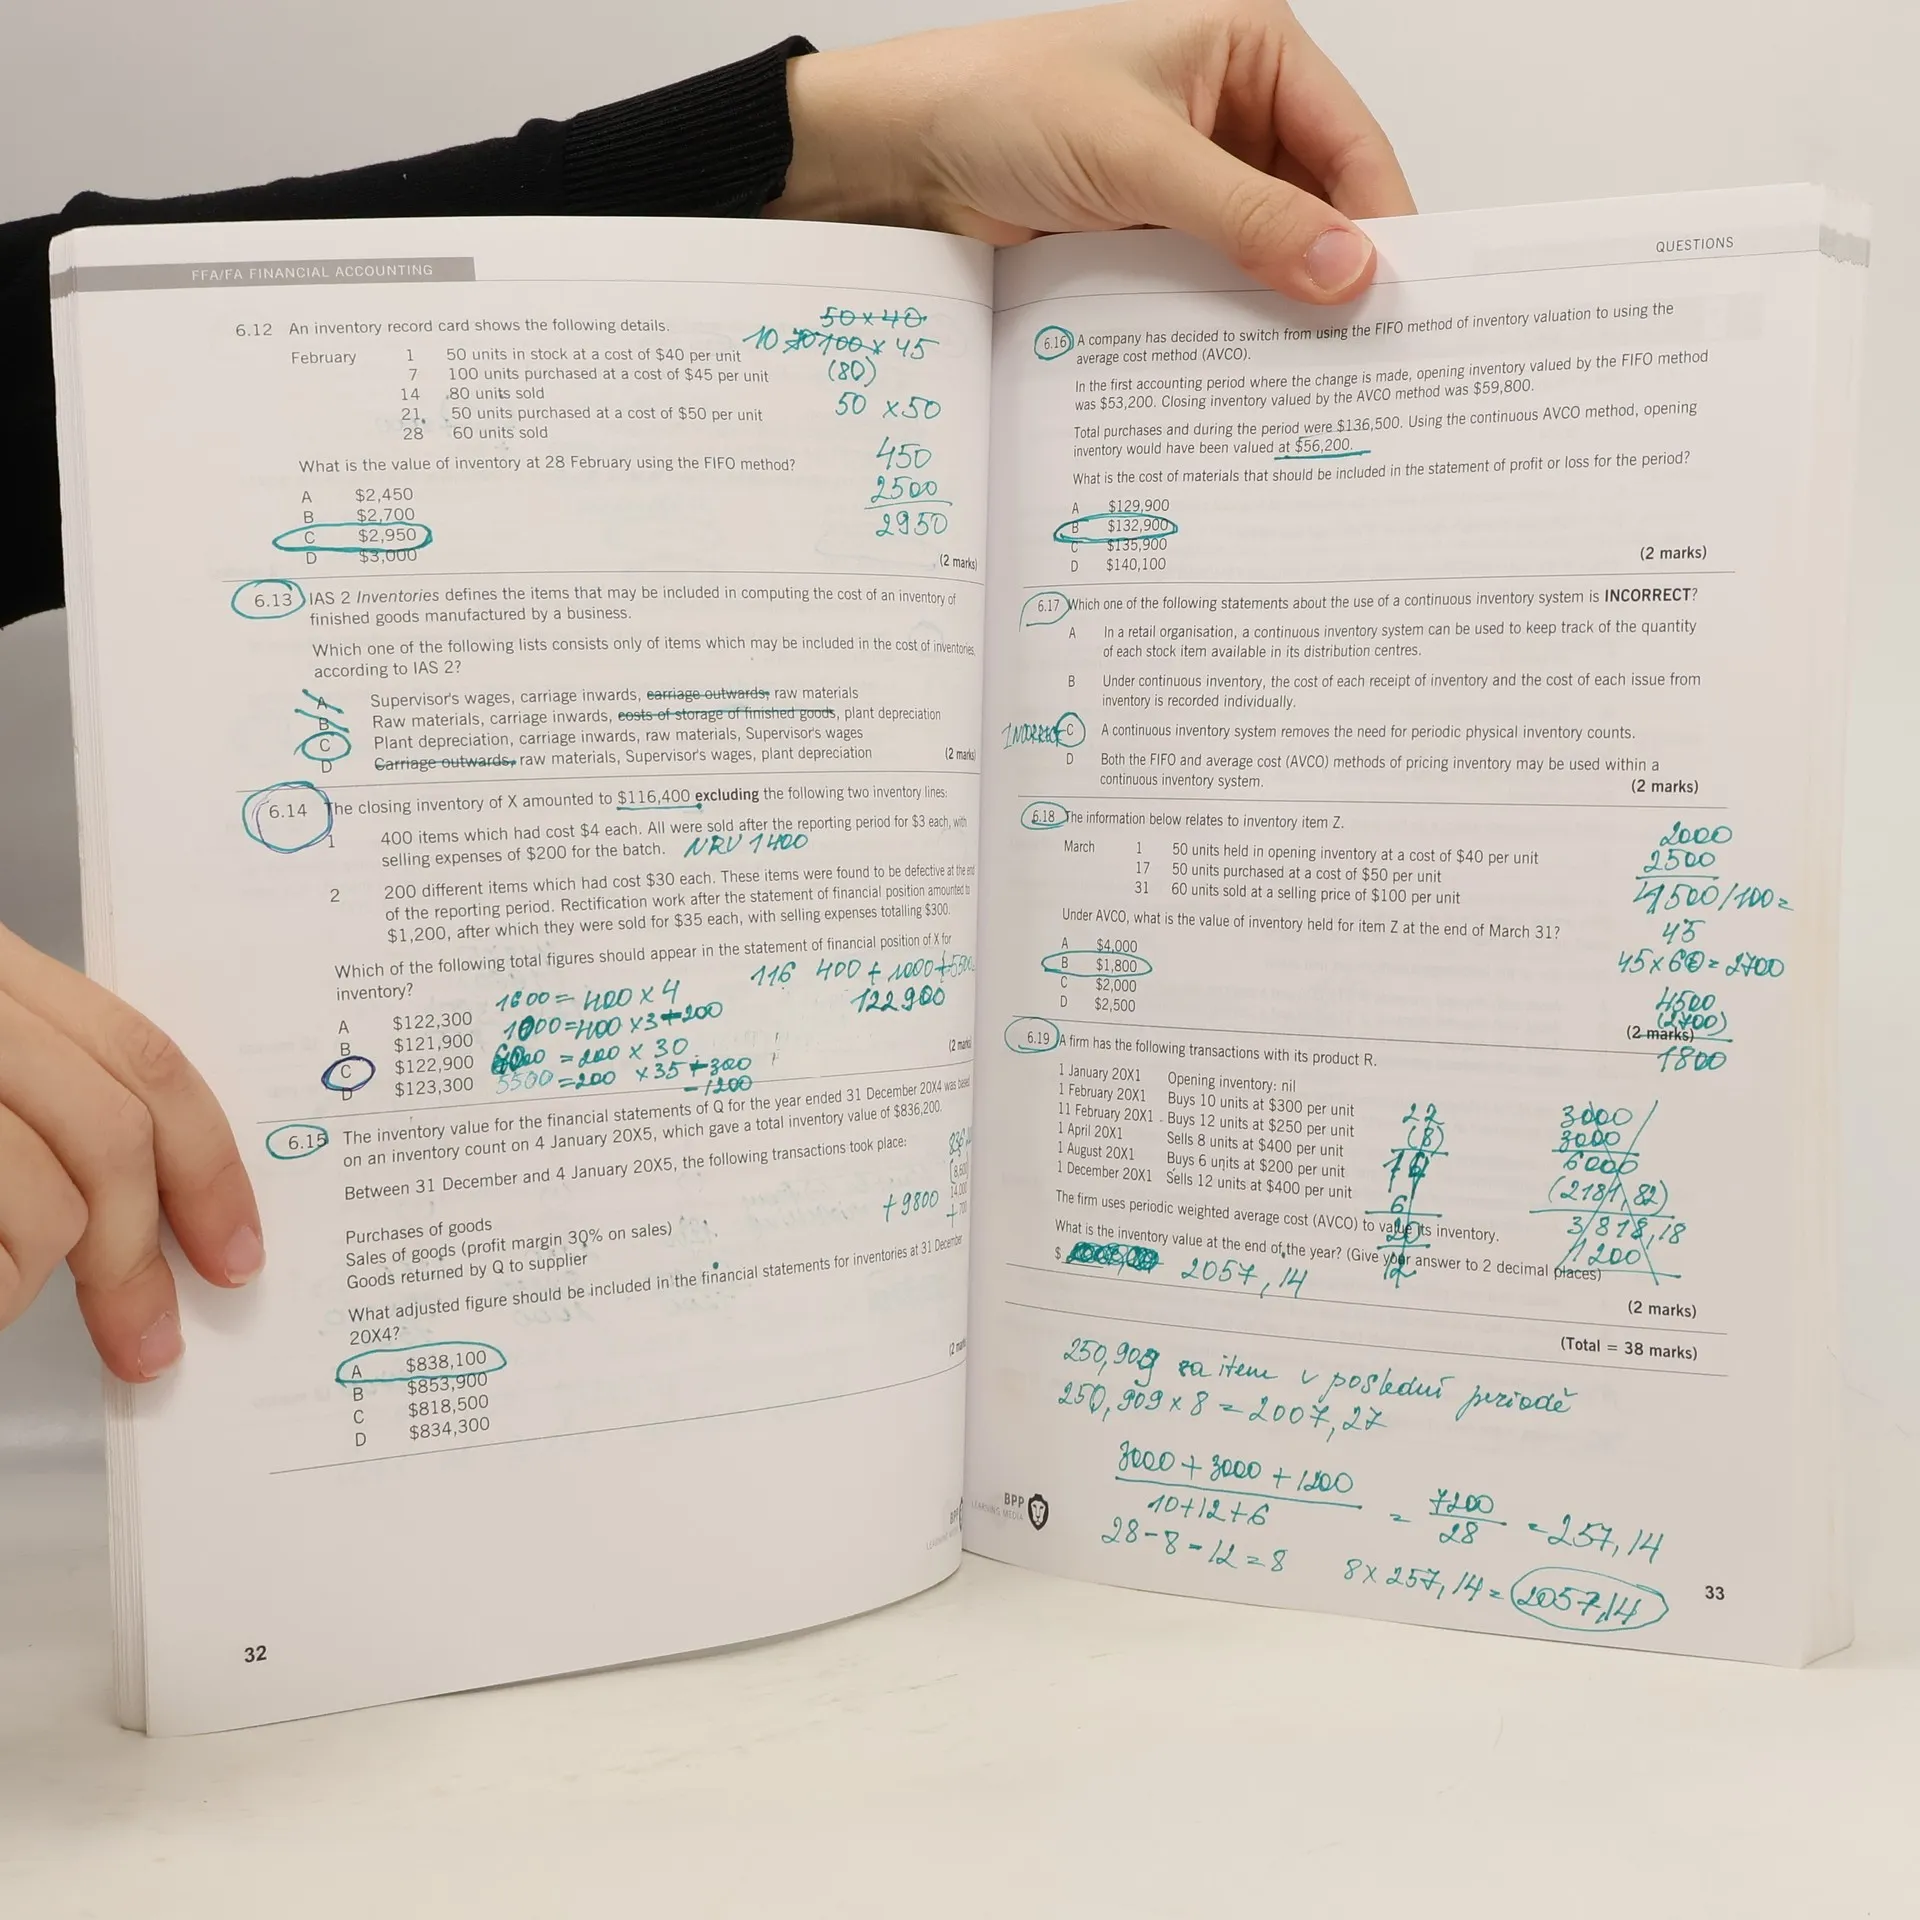 FFA/FA FINANCIAL ACCOUNTING
6.12 An inventory record card shows the following details.
February 1 50 units in stock at a cost of $40 per unit
7 100 units purchased at a cost of $45 per unit
14 80 units sold
21 50 units purchased at a cost of $50 per unit
28 60 units sold
50 x 40
10 100 x 45
(80)
50 x 50
450
2500
2950
What is the value of inventory at 28 February using the FIFO method?
A $2,450
B $2,700
C $2,950
D $3,000
(2 marks)
6.13 IAS 2 Inventories defines the items that may be included in computing the cost of an inventory of
finished goods manufactured by a business.
Which one of the following lists consists only of items which may be included in the cost of inventories,
according to IAS 2?
A Supervisor's wages, carriage inwards, carriage outwards, raw materials
B Raw materials, carriage inwards, costs of storage of finished goods, plant depreciation
C Plant depreciation, carriage inwards, raw materials, Supervisor's wages
D Carriage outwards, raw materials, Supervisor's wages, plant depreciation
(2 marks)
6.14 The closing inventory of X amounted to $116,400 excluding the following two inventory lines:
1 400 items which had cost $4 each. All were sold after the reporting period for $3 each, with
selling expenses of $200 for the batch. NRV 1400
2 200 different items which had cost $30 each. These items were found to be defective at the end
of the reporting period. Rectification work after the statement of financial position amounted to
$1,200, after which they were sold for $35 each, with selling expenses totalling $300.
Which of the following total figures should appear in the statement of financial position of X for
inventory?
116 400 + 1000 + 5500
122900
1600 = 400 x 4
1000 = 400 x 3 - 200
6000 = 200 x 30
5500 = 200 x 35 - 300
- 1200
A $122,300
B $121,900
C $122,900
D $123,300
(2 marks
6.15 The inventory value for the financial statements of Q for the year ended 31 December 20X4 was based
on an inventory count on 4 January 20X5, which gave a total inventory value of $836,200.
Between 31 December and 4 January 20X5, the following transactions took place:
Purchases of goods
Sales of goods (profit margin 30% on sales)
Goods returned by Q to supplier
+ 9800
What adjusted figure should be included in the financial statements for inventories at 31 December
20X4?
A $838,100
B $853,900
C $818,500
D $834,300
(2 mark
32
QUESTIONS
6.16 A company has decided to switch from using the FIFO method of inventory valuation to using the
average cost method (AVCO).
In the first accounting period where the change is made, opening inventory valued by the FIFO method
was $53,200. Closing inventory valued by the AVCO method was $59,800.
Total purchases and during the period were $136,500. Using the continuous AVCO method, opening
inventory would have been valued at $56,200.
What is the cost of materials that should be included in the statement of profit or loss for the period?
A $129,900
B $132,900
C $135,900
D $140,100
(2 marks)
6.17 Which one of the following statements about the use of a continuous inventory system is INCORRECT?
A In a retail organisation, a continuous inventory system can be used to keep track of the quantity
of each stock item available in its distribution centres.
B Under continuous inventory, the cost of each receipt of inventory and the cost of each issue from
inventory is recorded individually.
INCORRECT C A continuous inventory system removes the need for periodic physical inventory counts.
D Both the FIFO and average cost (AVCO) methods of pricing inventory may be used within a
continuous inventory system.
(2 marks)
6.18 The information below relates to inventory item Z.
March 1 50 units held in opening inventory at a cost of $40 per unit
17 50 units purchased at a cost of $50 per unit
31 60 units sold at a selling price of $100 per unit
Under AVCO, what is the value of inventory held for item Z at the end of March 31?
A $4,000
B $1,800
C $2,000
D $2,500
(2 marks)
2000
2500
4500/100=
45
45 x 60 = 2700
4500
(2700)
1800
6.19 A firm has the following transactions with its product R.
1 January 20X1 Opening inventory: nil
1 February 20X1 Buys 10 units at $300 per unit
11 February 20X1 Buys 12 units at $250 per unit
1 April 20X1 Sells 8 units at $400 per unit
1 August 20X1 Buys 6 units at $200 per unit
1 December 20X1 Sells 12 units at $400 per unit
22
(8)
14
6
20
12
3000
3000
6000
(2181,82)
3818,18
1200
The firm uses periodic weighted average cost (AVCO) to value its inventory.
What is the inventory value at the end of the year? (Give your answer to 2 decimal places)
$ 2057,14
(2 marks)
(Total = 38 marks)
250,909 za item v poslední periodě
250,909 x 8 = 2007,27
3000 + 3000 + 1200
10+12+6
= 7200
28
= 257,14
28 - 8 - 12 = 8
8 x 257,14 = 2057,14
BPP
LEARNING MEDIA
33